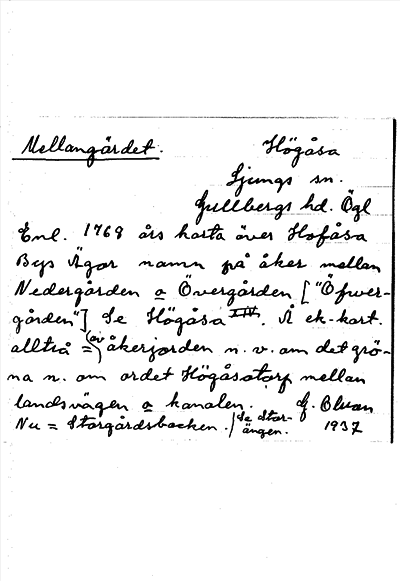 Mellangärdet. Högåsa
Ljungs sn.
Gullbergs hd. Ögl
Enl. 1768 års karta över Hofåsa
Bys Ägor namn på åker mellan
Nedergården o Övergården ["Öfwer-
gården"] Se Högåsa III. Å ek-kart.
alltså = (av åkerjorden n. v. om det grö-
na n. om ordet Högåsatorp mellan
landsvägen o kanalen.
Nu = Storgårdsbacken. / Se Stor-
ängen. 1937